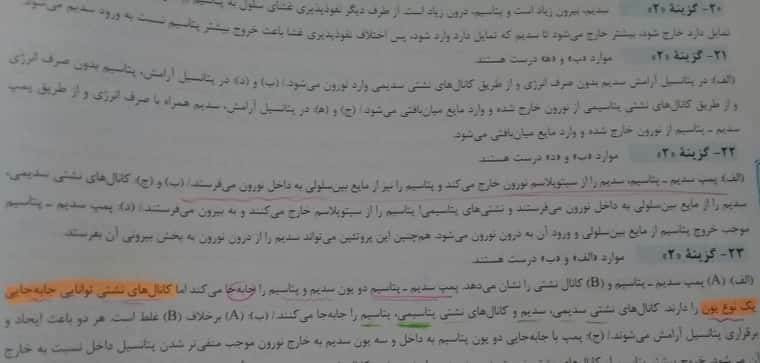 ۲۰- گزینهٔ «۲» سدیم، بیرون زیاد است و پتاسیم، درون زیاد است. از طرف دیگر نفوذپذیری غشای سلول به پتاسیم
تمایل دارد خارج شود، بیشتر خارج می‌شود تا سدیم که تمایل دارد وارد شود، پس اختلاف نفوذپذیری غشا باعث خروج بیشتر پتاسیم نسبت به ورود سدیم می‌شود.
۲۱- گزینهٔ «۲» موارد «ب» و «ه» درست هستند.
(الف): در پتانسیل آرامش سدیم بدون صرف انرژی و از طریق کانال‌های نشتی سدیمی وارد نورون می‌شود./ (ب) و (د): در پتانسیل آرامش، پتاسیم بدون صرف انرژی
و از طریق کانال‌های نشتی پتاسیمی از نورون خارج شده و وارد مایع میان‌بافتی می‌شود./ (ج) و (ه): در پتانسیل آرامش، سدیم همراه با صرف انرژی و از طریق پمپ
سدیم ـ پتاسیم از نورون خارج شده و وارد مایع میان‌بافتی می‌شود.
۲۲- گزینهٔ «۳» موارد «ب» و «د» درست هستند.
(الف): پمپ سدیم ـ پتاسیم، سدیم را از سیتوپلاسم نورون خارج می‌کند و پتاسیم را نیز از مایع بین‌سلولی به داخل نورون می‌فرستند./ (ب) و (ج): کانال‌های نشتی سدیمی،
سدیم را از مایع بین‌سلولی به داخل نورون می‌فرستند و نشتی‌های پتاسیمی! پتاسیم را از سیتوپلاسم خارج می‌کنند و به بیرون می‌فرستند./ (د): پمپ سدیم ـ پتاسیم
موجب خروج پتاسیم از مایع بین‌سلولی و ورود آن به درون نورون می‌شود. هم‌چنین این پروتئین می‌تواند سدیم را از درون نورون به بخش بیرونی آن بفرستد.
۲۳- گزینهٔ «۲» موارد «الف» و «ب» درست هستند.
(الف): (A) پمپ سدیم ـ پتاسیم و (B) کانال نشتی را نشان می‌دهد. پمپ سدیم ـ پتاسیم دو یون سدیم و پتاسیم را جابه‌جا می‌کند اما کانال‌های نشتی توانایی جابه‌جایی
یک نوع یون را دارند. کانال‌های نشتی سدیمی، سدیم و کانال‌های نشتی پتاسیمی، پتاسیم را جابه‌جا می‌کنند./ (ب): (A) برخلاف (B) غلط است. هر دو باعث ایجاد و
برقراری پتانسیل آرامش می‌شوند./ (ج): پمپ با جابه‌جایی دو یون پتاسیم به داخل و سه یون سدیم به خارج نورون موجب منفی‌تر شدن پتانسیل داخل نسبت به خارج